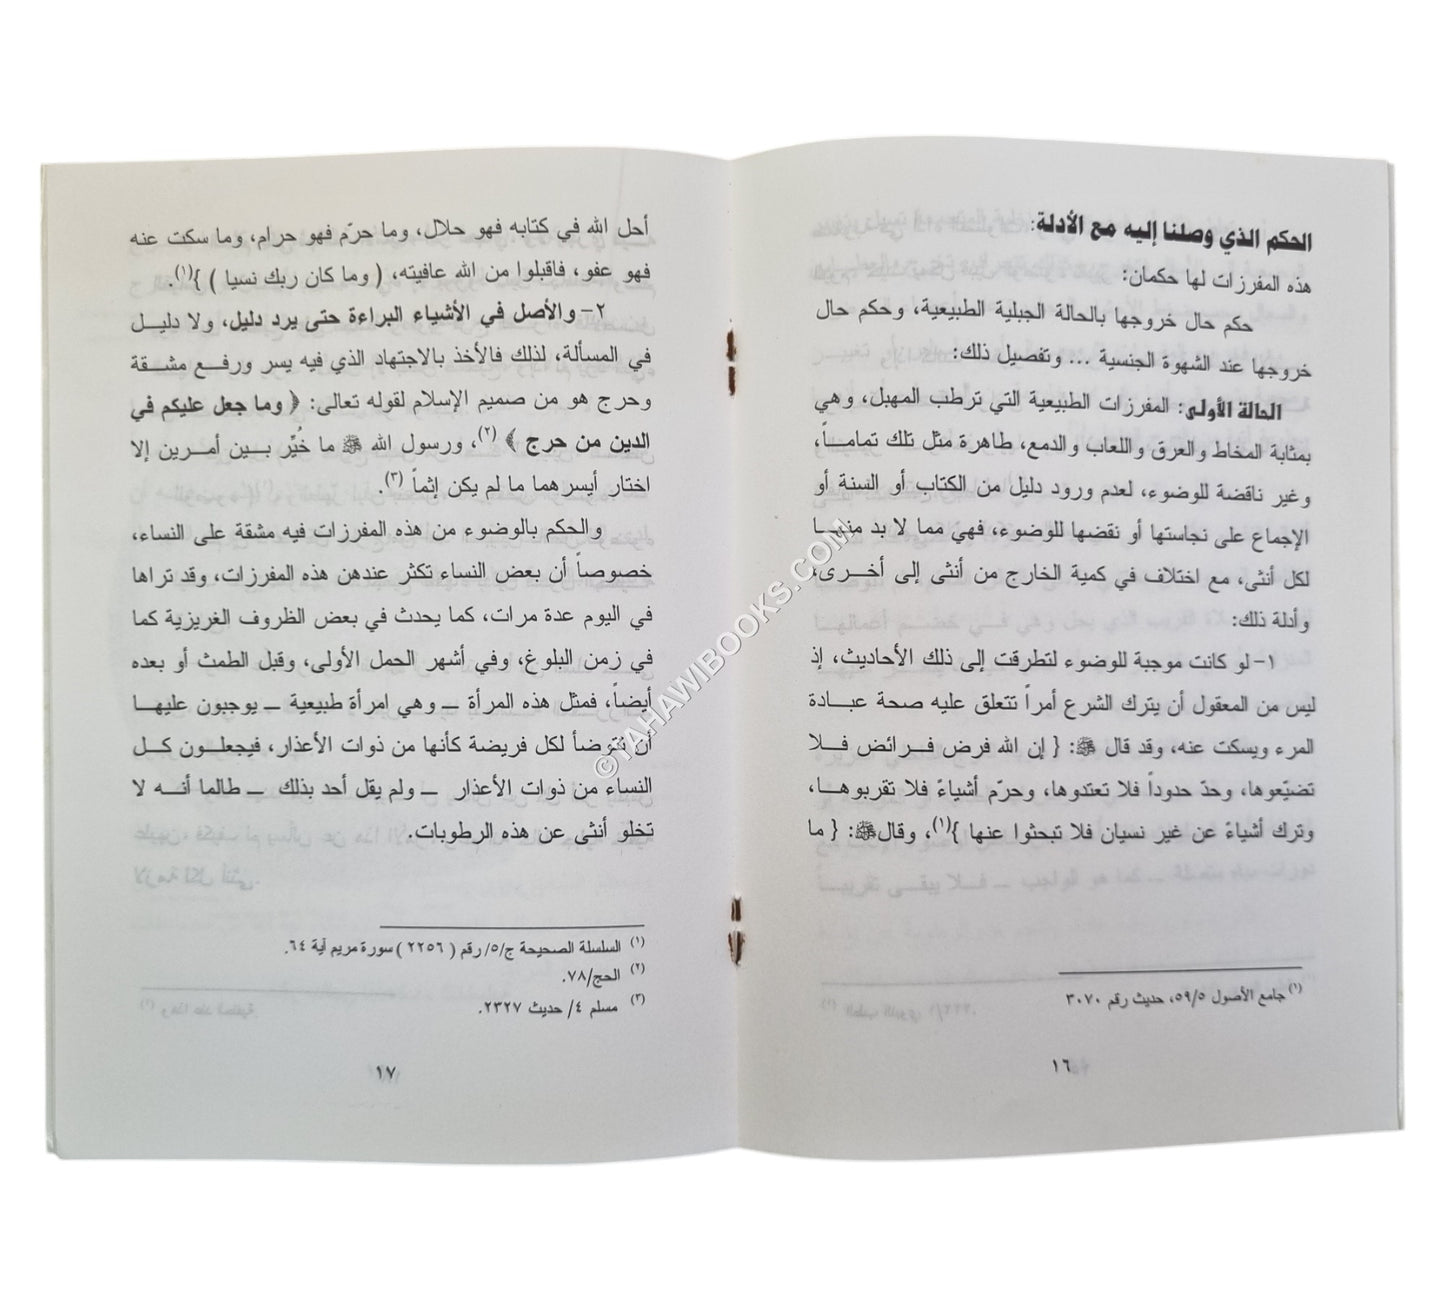 الحكم الذي وصلنا إليه مع الأدلة:
هذه المفرزات لها حكمان:
حكم حال خروجها بالحالة الجبلية الطبيعية، وحكم حال
خروجها عند الشهوة الجنسية ... وتفصيل ذلك:
الحالة الأولى: المفرزات الطبيعية التي ترطب المهبل، وهي
بمثابة المخاط والعرق واللعاب والدمع، طاهرة مثل تلك تمامـاً،
وغير ناقضة للوضوء، لعدم ورود دليل من الكتاب أو السنة أو
الإجماع على نجاستها أو نقضها للوضوء، فهي مما لا بد منهـا
لكل أنثى، مع اختلاف في كمية الخارج من أنثى إلى أخـرى،
وأدلة ذلك:
١- لو كانت موجبة للوضوء لتطرقت إلى ذلك الأحاديث، إذ
ليس من المعقول أن يترك الشرع أمراً تتعلق عليه صحة عبـادة
المرء ويسكت عنه، وقد قال ﷺ: { إن الله فرض فـرائض فـلا
تضيّعوها، وحدّ حدوداً فلا تعتدوها، وحرّم أشياءً فلا تقربوهـا،
وترك أشياءً عن غير نسيان فلا تبحثوا عنها }(١)، وقالﷺ: { ما
(١) جامع الأصول ٥٩/٥، حديث رقم ٣٠٧٠
١٦
أحل الله في كتابه فهو حلال، وما حرّم فهو حرام، وما سكت عنه
فهو عفو، فاقبلوا من الله عافيته، ( وما كان ربك نسيا ) }(١).
٢- والأصل في الأشياء البراءة حتى يرد دليل، ولا دليـل
في المسألة، لذلك فالأخذ بالاجتهاد الذي فيه يسر ورفـع مشـقة
وحرج هو من صميم الإسلام لقوله تعالى: ﴿ وما جعل عليكم في
الدين من حرج ﴾ (٢)، ورسول الله ﷺ ما خُيِّر بـين أمـرين إلا
اختار أيسرهما ما لم يكن إثماً (٣).
والحكم بالوضوء من هذه المفرزات فيه مشقة على النساء،
خصوصاً أن بعض النساء تكثر عندهن هذه المفرزات، وقد تراها
في اليوم عدة مرات، كما يحدث في بعض الظروف الغريزية كما
في زمن البلوغ، وفي أشهر الحمل الأولى، وقبل الطمث أو بعده
أيضاً، فمثل هذه المرأة ــ وهي امرأة طبيعية ــ يوجبون عليهـا
أن تتوضأ لكل فريضة كأنها من ذوات الأعذار، فيجعلـون كـل
النساء من ذوات الأعذار ــ ولم يقل أحد بذلك ــ طالما أنـه لا
تخلو أنثى عن هذه الرطوبات.
(١) السلسلة الصحيحة ج/٥/ رقم ( ٢٢٥٦ ) سورة مريم آية ٦٤.
(٢) الحج/٧٨.
(٣) مسلم ٤/ حديث ٢٣٢٧.
١٧
©TAHAWIBOOKS.COM